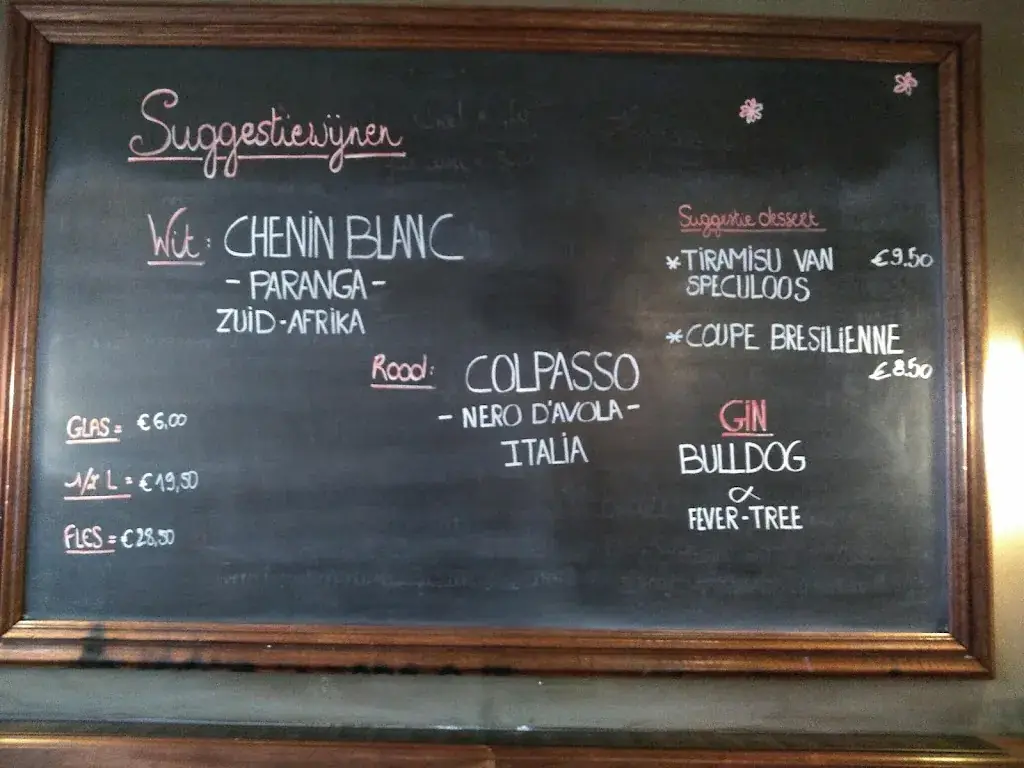 Suggestiewijnen
Wit: CHENIN BLANC
- PARANGA -
ZUID-AFRIKA
Rood: COLPASSO
- NERO D'AVOLA -
ITALIA
GLAS = €6,00
1/2 L = €19,50
FLES = €28,50
Suggestie dessert
* TIRAMISU VAN €9.50
SPECULOOS
* COUPE BRESILIENNE
€8.50
GIN
BULLDOG
&
FEVER-TREE